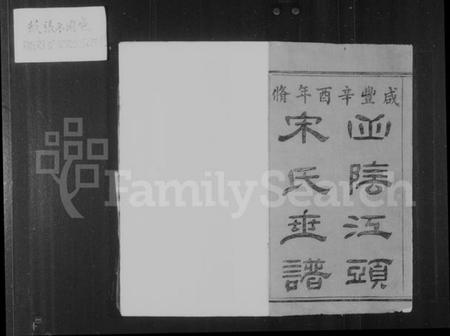 咸豐辛酉年脩
山陰江頭
宋氏世譜
FamilySearch